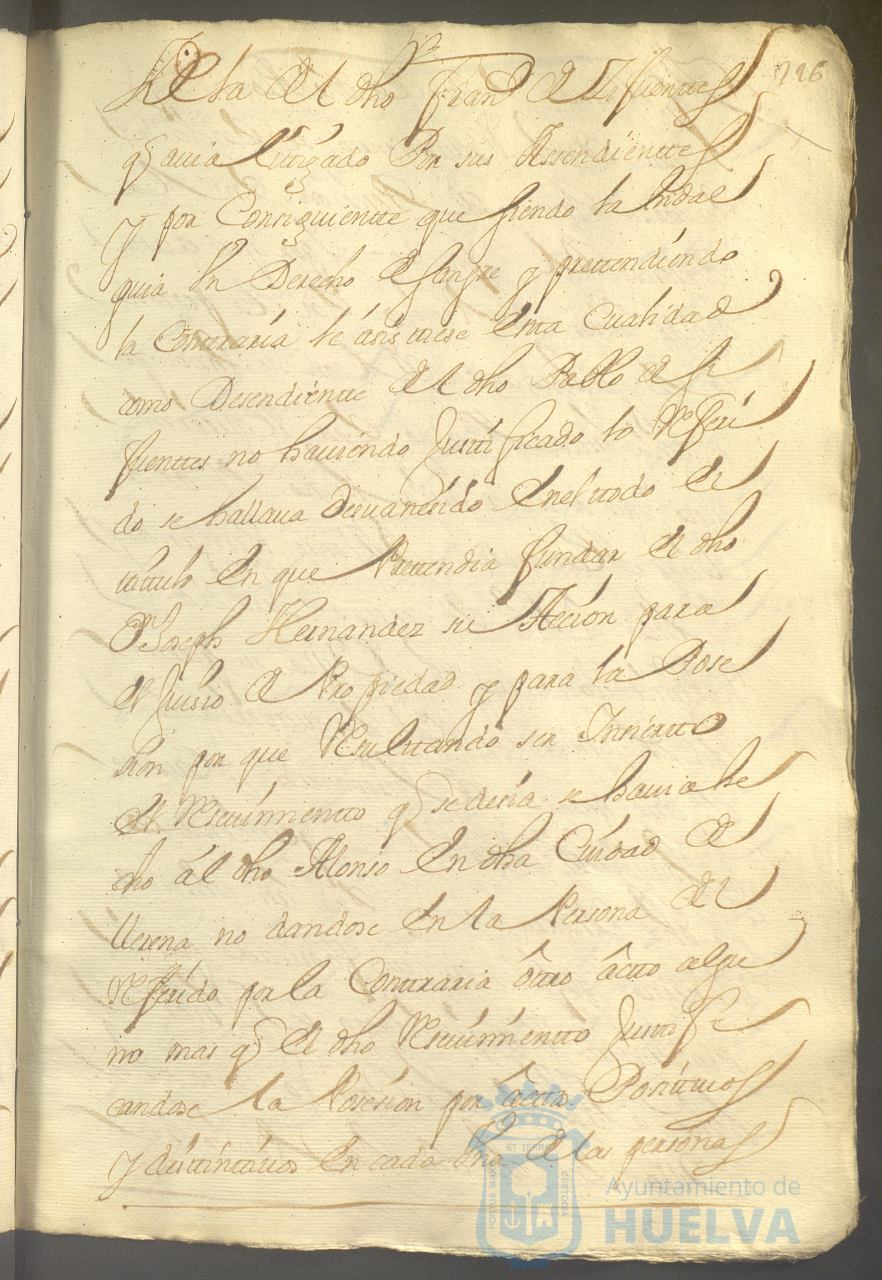 226
de la del dho Franco de Sifuentes
q avia litigado Por sus Asendienttes
y por Consiguientte que siendo la hidal
guia Un Derecho de sangre y prettendiendo
la Conttraria le asisttiese Esta Cualidad
como Desendientte del dho Pablo de Si
fuenttes no haviendo Justtificado lo Referi
do se hallava desvanesido Enel ttodo El
tittulo En que Prettendia fundar El dho
Dn Joseph Hernandez su Accion para
el Juisio de Propiedad y para la Pose
sion por que Resulttando ser Inciertto
El Resivimientto q se desia se havia he
cho al dho Alonso En dha Ciudad de
llerena no dandose En la Persona del
Referido por la Conttraria ottro actto algu
no mas q El dho Resivimientto Justtifi
candose la Posesion por acttos Posittivos
y disttinttivos En cada Una de las personas
Ayuntamiento de
HUELVA
PORTUS MARIS ET TERRE CUSTODIA